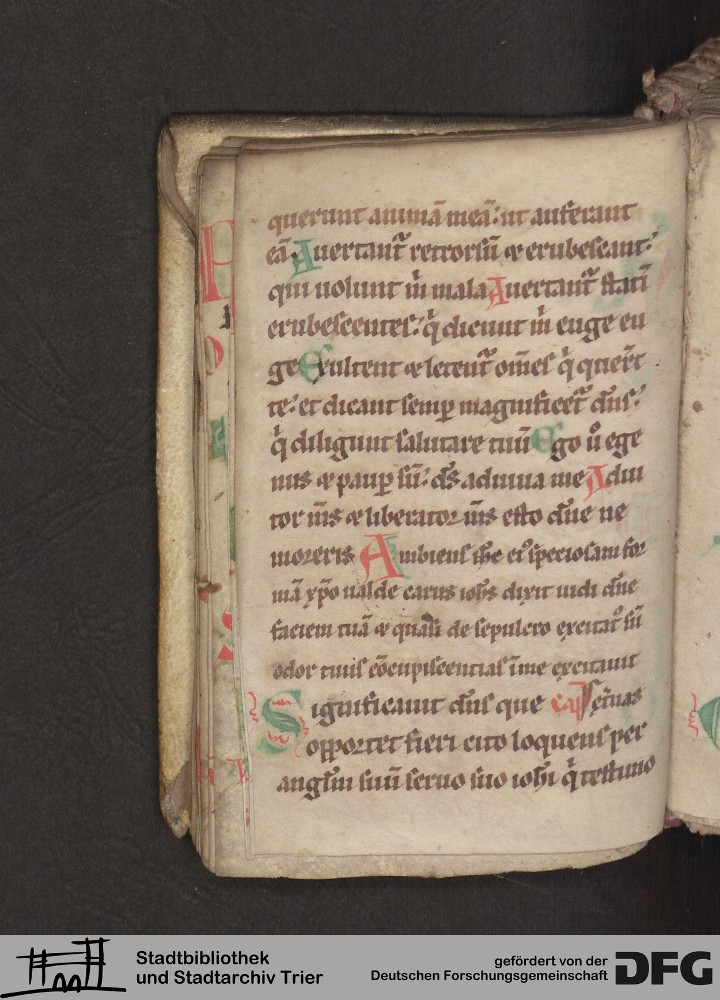 querunt animā meā: ut auferant
eā. Auertant᷑ retrorsū & erubescant:
qui uolunt m̄ mala Auertant᷑ statī
erubescentes: q̄ dicunt m̄ euge eu
ge Exultent & letent᷑ om̄es q̄ querūt
te: et dicant semꝑ magnificet᷑ dn̄s:
q̄ diligunt salutare tuū Ego ů ege
nus & paupꝑ sū: ds̄ adiuua me Adiu
tor m̄s & liberator m̄s esto dn̄e ne
moreris Ambiens ihc eiꝰ speciosam for
mā xp̄o ualde carus iohs dixit uidi dn̄e
faciem tuā & quasi de sepulcro excitatꝰ sū
odor tuus cōcupiscentias ī me excitauit
Significauit dn̄s que cap̄
opportet fieri cito loquens per
anglm suū seruo suo iohī q̄ testimo
Stadtbibliothek
und Stadtarchiv Trier
gefördert von der
Deutschen Forschungsgemeinschaft
DFG